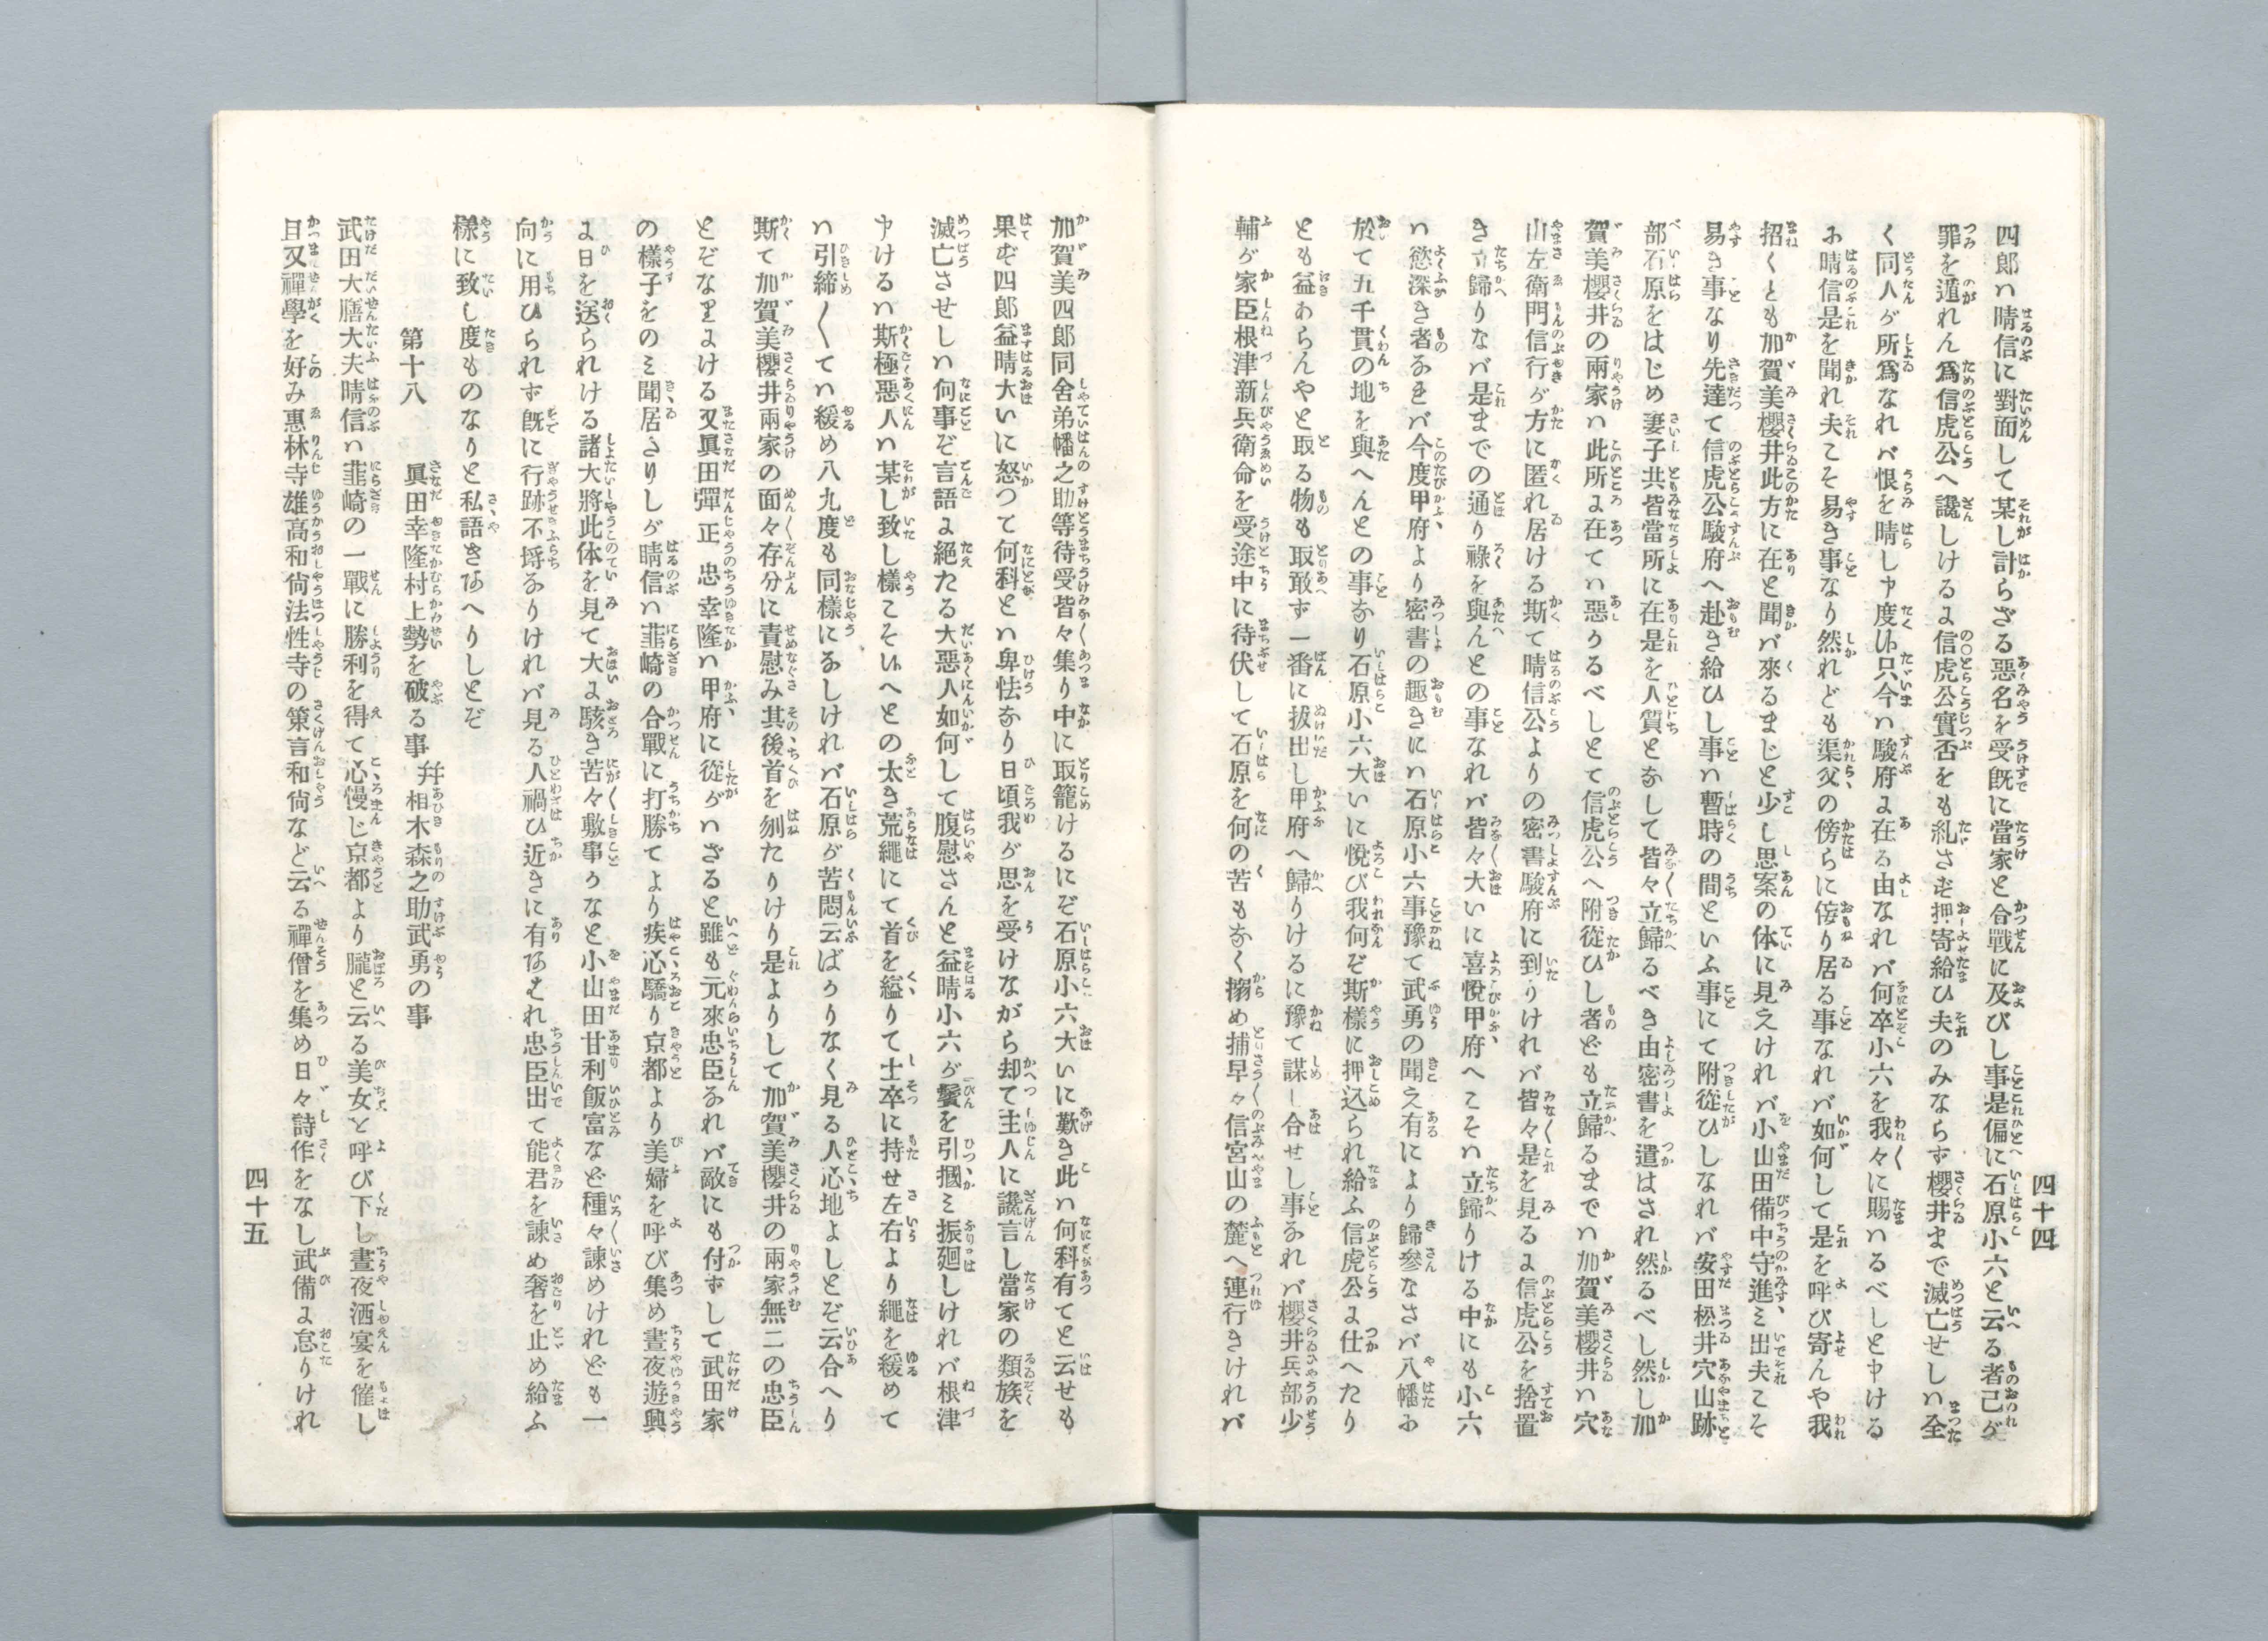 四十四
四郎ハ晴信に對面して某し計らざる惡名を受既に當家と合戰に及びし事是偏に石原小六と云る者己が
罪を遁れん爲信虎公へ讒しけるよ信虎公實否をも糺さず押寄給ひ夫のみならず櫻井まで滅亡せしハ全
く同人が所爲なれバ恨を晴し申度候只今ハ駿府よ在る由なれバ何卒小六を我々に賜ハるべしと申ける
お晴信是を聞れ夫こそ易き事なり然れども渠父の傍らに侫り居る事なれバ如何して是を呼び寄んや我
招くとも加賀美櫻井此方に在と聞バ來るまじと少し思案の体に見えけれバ小山田備中守進ミ出夫こそ
易き事なり先達て信虎公駿府へ赴き給ひし事ハ暫時の間といふ事にて附從ひしなれバ安田松井穴山跡
部石原をはじめ妻子共皆當所に在是を人質となして皆々立歸るべき由密書を遣はされ然るべし然し加
賀美櫻井の兩家ハ此所よ在てハ惡うるべしとて信虎公へ附從ひし者ども立歸るまでハ加賀美櫻井ハ穴
山左衛門信行が方に匿れ居ける斯て晴信公よりの密書駿府に到りけれバ皆々是を見るよ信虎公を捨置
き立歸りなバ是までの通り祿を與んとの事なれバ皆々大いに喜悅甲府へこそハ立歸りける中にも小六
ハ慾深き者なをバ今度甲府より密書の趣きにハ石原小六事豫て武勇の聞え有により歸參なさバ八幡お
於て五千貫の地を與へんとの事なり石原小六大いに悅び我何ぞ斯樣に押込られ給ふ信虎公よ仕へたり
とも益あらんやと取る物も取敢ず一番に拔出し甲府へ歸りけるに豫て謀し合せし事なれバ櫻井兵部少
輔が家臣根津新兵衛命を受途中に待伏して石原を何の苦もなく搦め捕早々信宮山の麓へ連行きけれバ
加賀美四郎同舍弟幡之助等待受皆々集り中に取籠けるにぞ石原小六大いに歎き此ハ何科有てと云せも
果ず四郎益晴大いに怒つて何科とハ卑怯なり日頃我が恩を受けながら却て主人に讒言し當家の類族を
滅亡させしハ何事ぞ言語よ絕たる大惡人如何して腹慰さんと益晴小六が鬢を引摑ミ振廻しけれバ根津
申けるハ斯極惡人ハ某し致し樣こそ候へとの太き荒繩にて首を縊りて士卒に持せ左右より繩を緩めて
ハ引締〱てハ緩め八九度も同樣になしけれバ石原が苦悶云ばうりなく見る人心地よしとぞ云合へり
斯て加賀美櫻井兩家の面々存分に責慰み其後首を刎たりけり是よりして加賀美櫻井の兩家無二の忠臣
とぞなりよける又眞田彈正忠幸隆ハ甲府に從がハざると雖も元來忠臣なれバ敵にも付ずして武田家
の樣子をのミ聞居さりしが晴信ハ韮崎の合戰に打勝てより疾心驕り京都より美婦を呼び集め晝夜遊興
よ日を送られける諸大將此体を見て大よ駭き苦々敷事うなと小山田甘利飯富など種々諫めけれども一
向に用ひられず旣に行跡不埓なりけれバ見る人禍ひ近きに有あそれ忠臣出て能君を諫め奢を止め給ふ
樣に致し度ものなりと私語きあへりしとぞ
第十八　眞田幸隆村上勢を破る事　幷相木森之助武勇の事
武田大膳大夫晴信ハ韮崎の一戰に勝利を得て心慢じ京都より朧と云る美女と呼び下し晝夜酒宴を催し
且又禪學を好み惠林寺雄高和尙法性寺の策言和尙など云る禪僧を集め日々詩作をなし武備よ怠りけれ
四十五